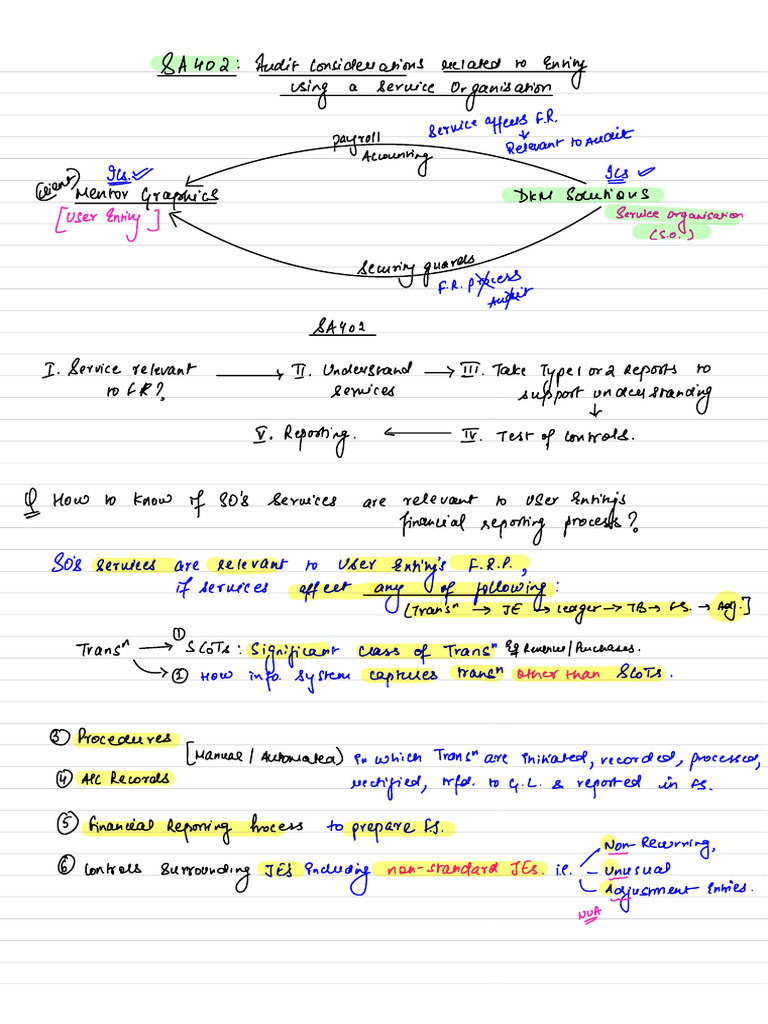 SA402: Audit Considerations related to Entity
using a Service Organisation
Service affects F.R.
↓
Relevant to Audit
payroll
Accounting
ICs. ✓
ICs ✓
(client)
Mentor Graphics
DKM Solutions
[User Entity]
Service organisation
(S.O.)
Security guards
F.R. process
Audit
SA402
I. Service relevant to FR? → II. Understand services → III. Take Type 1 or 2 Reports to support understanding
↓
V. Reporting. ← IV. Test of controls.
Q How to know if SO's services are relevant to User Entity's
financial reporting process?
SO's services are relevant to User Entity's F.R.P.,
if services affect any of following:
[Transⁿ → JE → Ledger → TB → FS. → Adj.]
Transⁿ → ① SCOTs: Significant class of Transⁿ Eg Revenue/Purchases.
→ ② How info. system captures transⁿ other than SCOTs.
③ Procedures
[Manual / Automated) in which Transⁿ are initiated, recorded, processed,
④ A/C Records
rectified, trfd. to G.L. & reported in FS.
⑤ Financial Reporting Process to prepare FS.
⑥ Controls surrounding JEs including non-standard JEs. i.e.
Non-Recurring,
Unusual
Adjustment Entries.
NUA